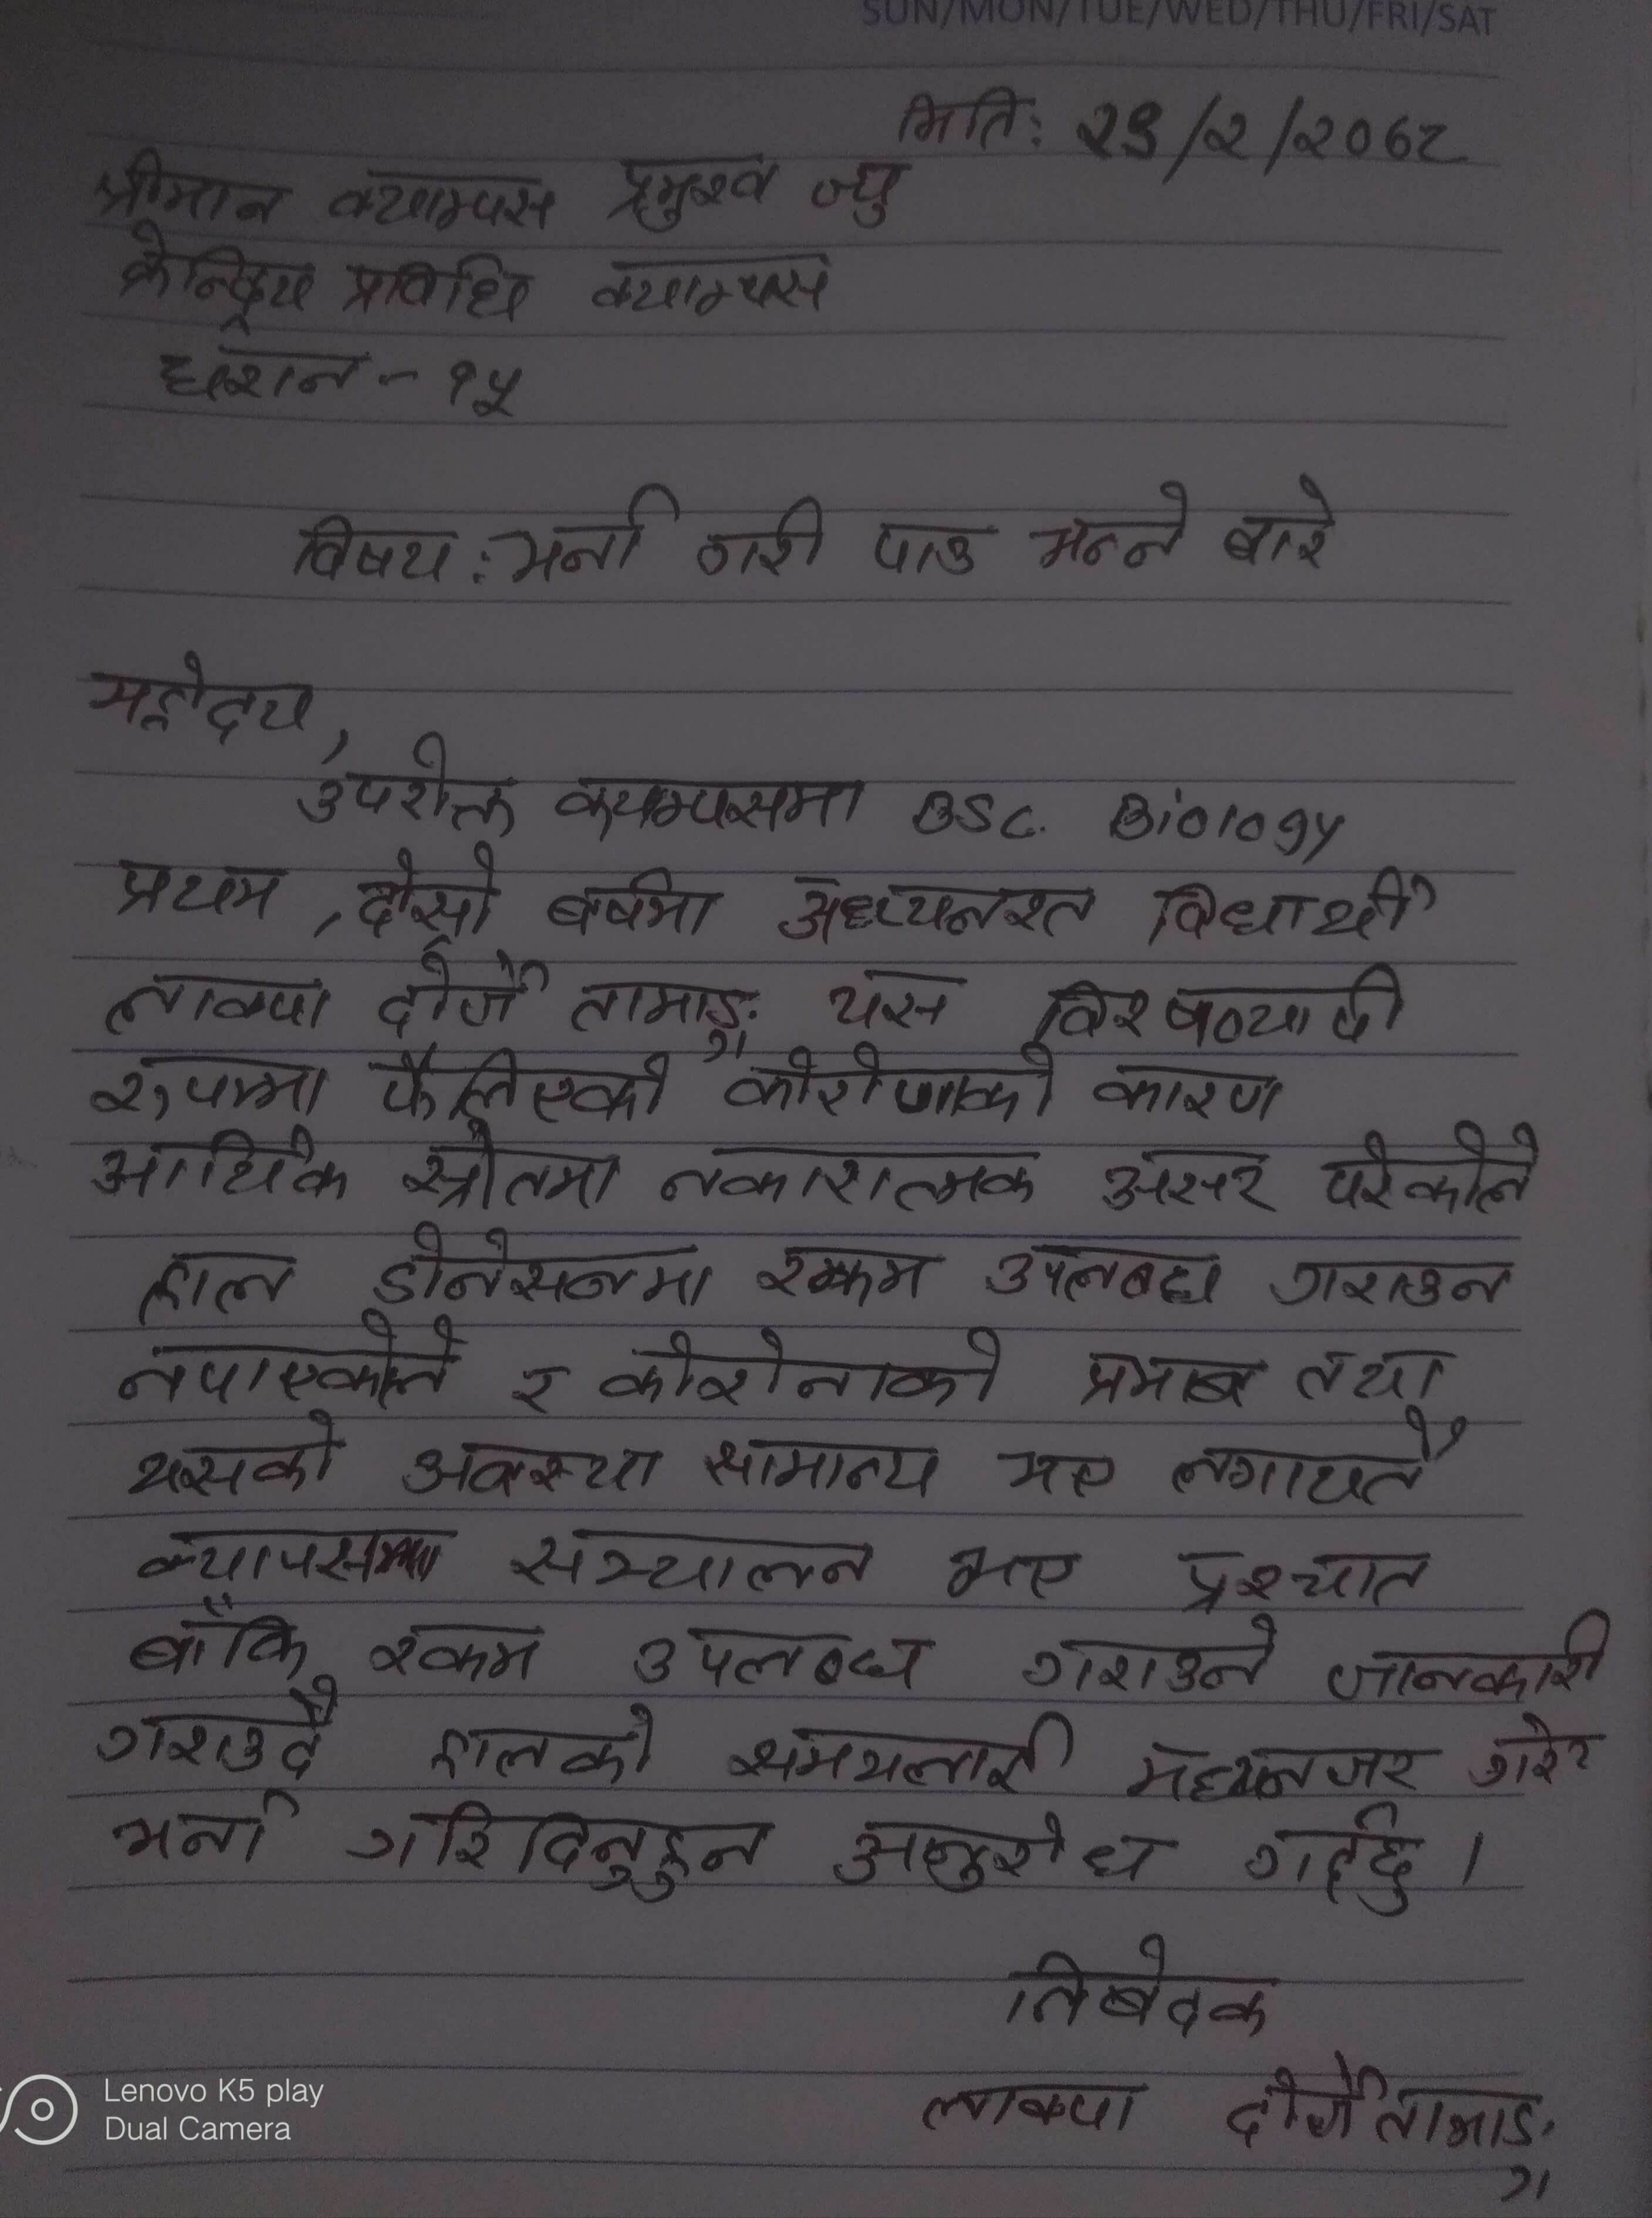 SUN/MON/TUE/WED/THU/FRI/SAT
मिति: २९/२/२०७८
श्रीमान क्याम्पस प्रमुख ज्यु
केन्द्रिय प्रविधि क्याम्पस
धरान - १५
विषय: भर्ना गरी पाउ भन्ने बारे
महोदय,
उपरोक्त क्याम्पसमा BSC. Biology
प्रथम, दोस्रो बर्षमा अध्ययनरत विधार्थी
लाक्पा दोर्जे तामाङ्ग यस विश्वव्यापी
रुपमा फैलिएको कोरोणाको कारण
आर्थिक स्रोतमा नकारात्मक असर परेकोले
हाल डोनेसनमा रकम उपलब्ध गराउन
नपाएकोले र कोरोनाको प्रभाब तथा
यसको अवस्था सामान्य भए लगायतै
क्यापसमा सञ्चालन भए प्रश्चात
बाँकि रकम उपलब्ध गराउने जानकारी
गराउदै हालको समयलाई मध्यनजर गरेर
भर्ना गरिदिनुहुन अनुरोध गर्दछु ।
निबेदक
लाक्पा दोर्जे तामाङ्ग
Lenovo K5 play
Dual Camera